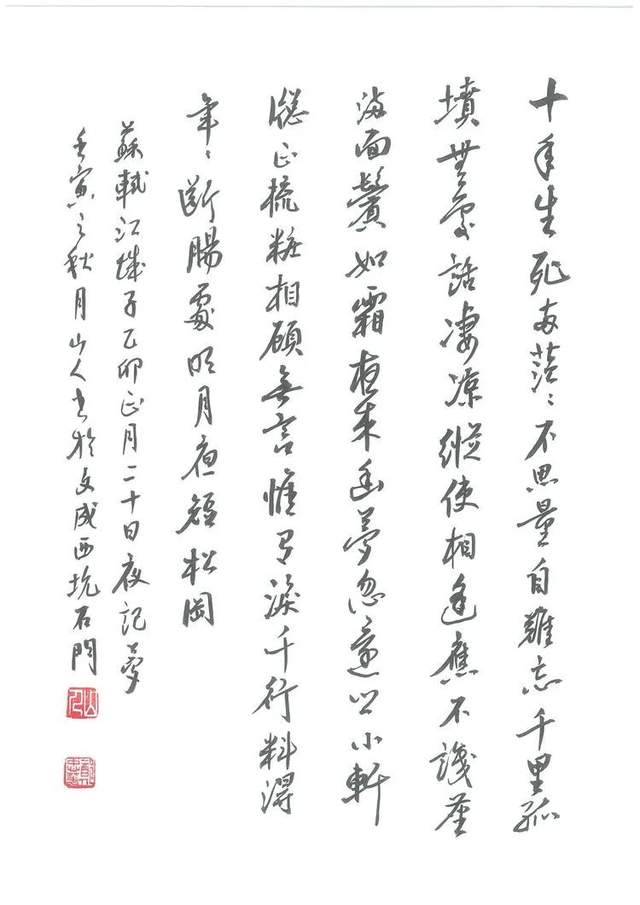 十年生死兩茫〻不思量自難忘千里孤
墳無處話凄凉縱使相逢應不識塵
滿面鬢如霜夜來幽夢忽還鄉小軒
窗正梳粧相顧無言惟有淚千行料得
年〻斷腸處明月夜短松岡
蘇軾江城子乙卯正月二十日夜記夢
壬寅之秋月山人書於文成西坑石門